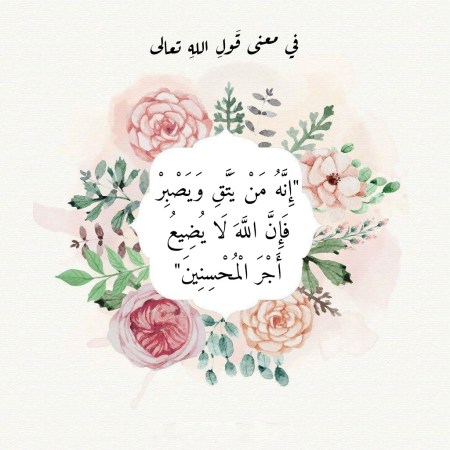 في معنى قَولِ اللهِ تعالى
"إِنَّهُ مَنْ يَتَّقِ وَيَصْبِرْ
فَإِنَّ اللَّهَ لَا يُضِيعُ
أَجْرَ الْمُحْسِنِينَ"